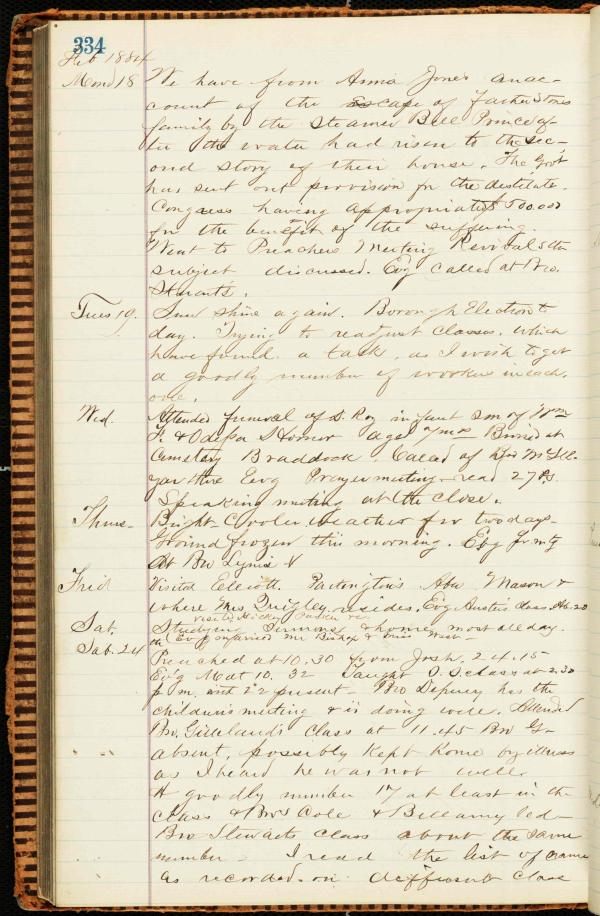 334
Feb 1884
Mond 18 We have from Anna Jones an ac-
count of the escape of father Jones
family by the Steamer Bell Prince af-
ter the water had risen to the sec-
ond story of their house. The Gov't
has sent out provision for the destitute.
Congress having appropriated $500.000
for the benefit of the suffering.
Went to Preachers Meeting Revivals the
subject discussed. Evg called at Bro.
Stuarts.
Tues 19. Sun shine again. Borough Election to
day. Trying to readjust classes. Which
have found a task, as I wish to get
a goodly number of workers in each
one.
Wed. Attended funeral of S. Roy infant son of Wm
F. & Odessa S Homer age 7 mos Buried at
Cemetery Braddock. Called at
Evg Prayer meeting read 27 Ps.
Speaking meeting at the close.
Thurs- Bright Cooler Weather for two days-
Ground frozen this morning. Evg Pr mtg
at Bro
Frid Visited Eliott. Partingtons Abu Mason &
where Mrs Quigley resides. Evg Austins class Att. 20
visited Hickey Parker &c.
Sat. Studying Sermons & home most all day.
in Evg married Mr Bishop & Miss
Sab. 24 Preached at 10.30 from Josh. 24.15-
Ev'g Mat 10. 32 Taught S. S. class at 2.30
p m, with 22 present- Bro Depuey has the
childrens meeting & is doing well. Attended
Bro. Gilleland's class at 11.45 Bro G-
absent, possibly kept home by illness
as I heard he was not well.
A goodly number 17 at least in the
class & Bros Cole & Bellamy led-
Bro Stewarts class about the same
number- I read the list of names
as recorded on different class